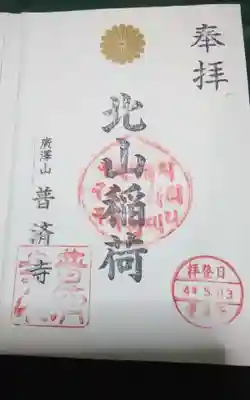 奉拝
北山稲荷
廣澤山 普済寺
拝登日